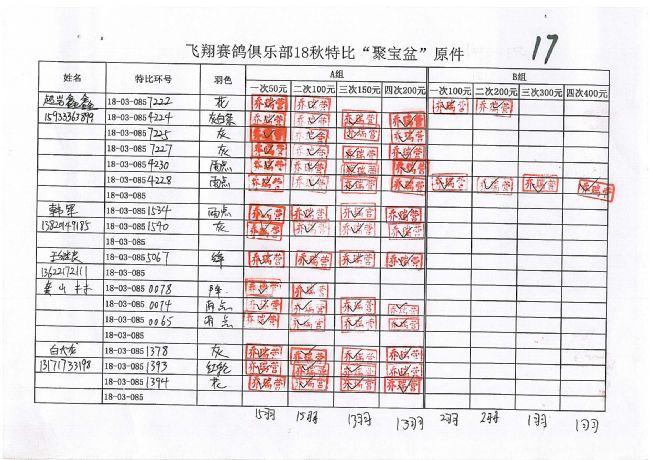 飞翔赛鸽俱乐部18秋特比“聚宝盆”原件 17
姓名 特比环号 羽色 A组 B组
一次50元 二次100元 三次150元 四次200元 一次100元 二次200元 三次300元 四次400元
18-03-0857222 花 乔瑞营 乔瑞营 乔瑞营 乔瑞营
15933363899 18-03-0854224 乔瑞营 乔瑞营 乔瑞营 乔瑞营
18-03-0857225 灰 乔瑞营 乔瑞营 乔瑞营 乔瑞营
18-03-0857227 灰 乔瑞营 乔瑞营 乔瑞营 乔瑞营
18-03-0854230 雨点 乔瑞营 乔瑞营 乔瑞营 乔瑞营
18-03-0854228 雨点 乔瑞营 乔瑞营 乔瑞营 乔瑞营 乔瑞营 乔瑞营 乔瑞营 乔瑞营
18-03-085
韩军 18-03-0851534 雨点 乔瑞营 乔瑞营 乔瑞营 乔瑞营
13820149185 18-03-0851540 灰 乔瑞营 乔瑞营 乔瑞营 乔瑞营
18-03-085
18-03-0855067 绛 乔瑞营 乔瑞营 乔瑞营 乔瑞营
13622172111 18-03-085
18-03-0850078 乔瑞营 乔瑞营
18-03-0850074 雨点 乔瑞营 乔瑞营 乔瑞营 乔瑞营
18-03-0850065 雨点 乔瑞营 乔瑞营 乔瑞营 乔瑞营
18-03-085
18-03-0851378 灰 乔瑞营 乔瑞营 乔瑞营 乔瑞营
13171733198 18-03-0851393 红轮 乔瑞营 乔瑞营 乔瑞营 乔瑞营
18-03-0851394 花 乔瑞营 乔瑞营 乔瑞营 乔瑞营
18-03-085
15羽 15羽 13羽 13羽 2羽 2羽 1羽 1羽